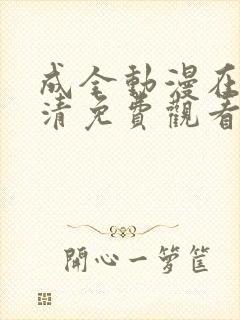 成全動漫在
清免費觀看
開心一籮筐